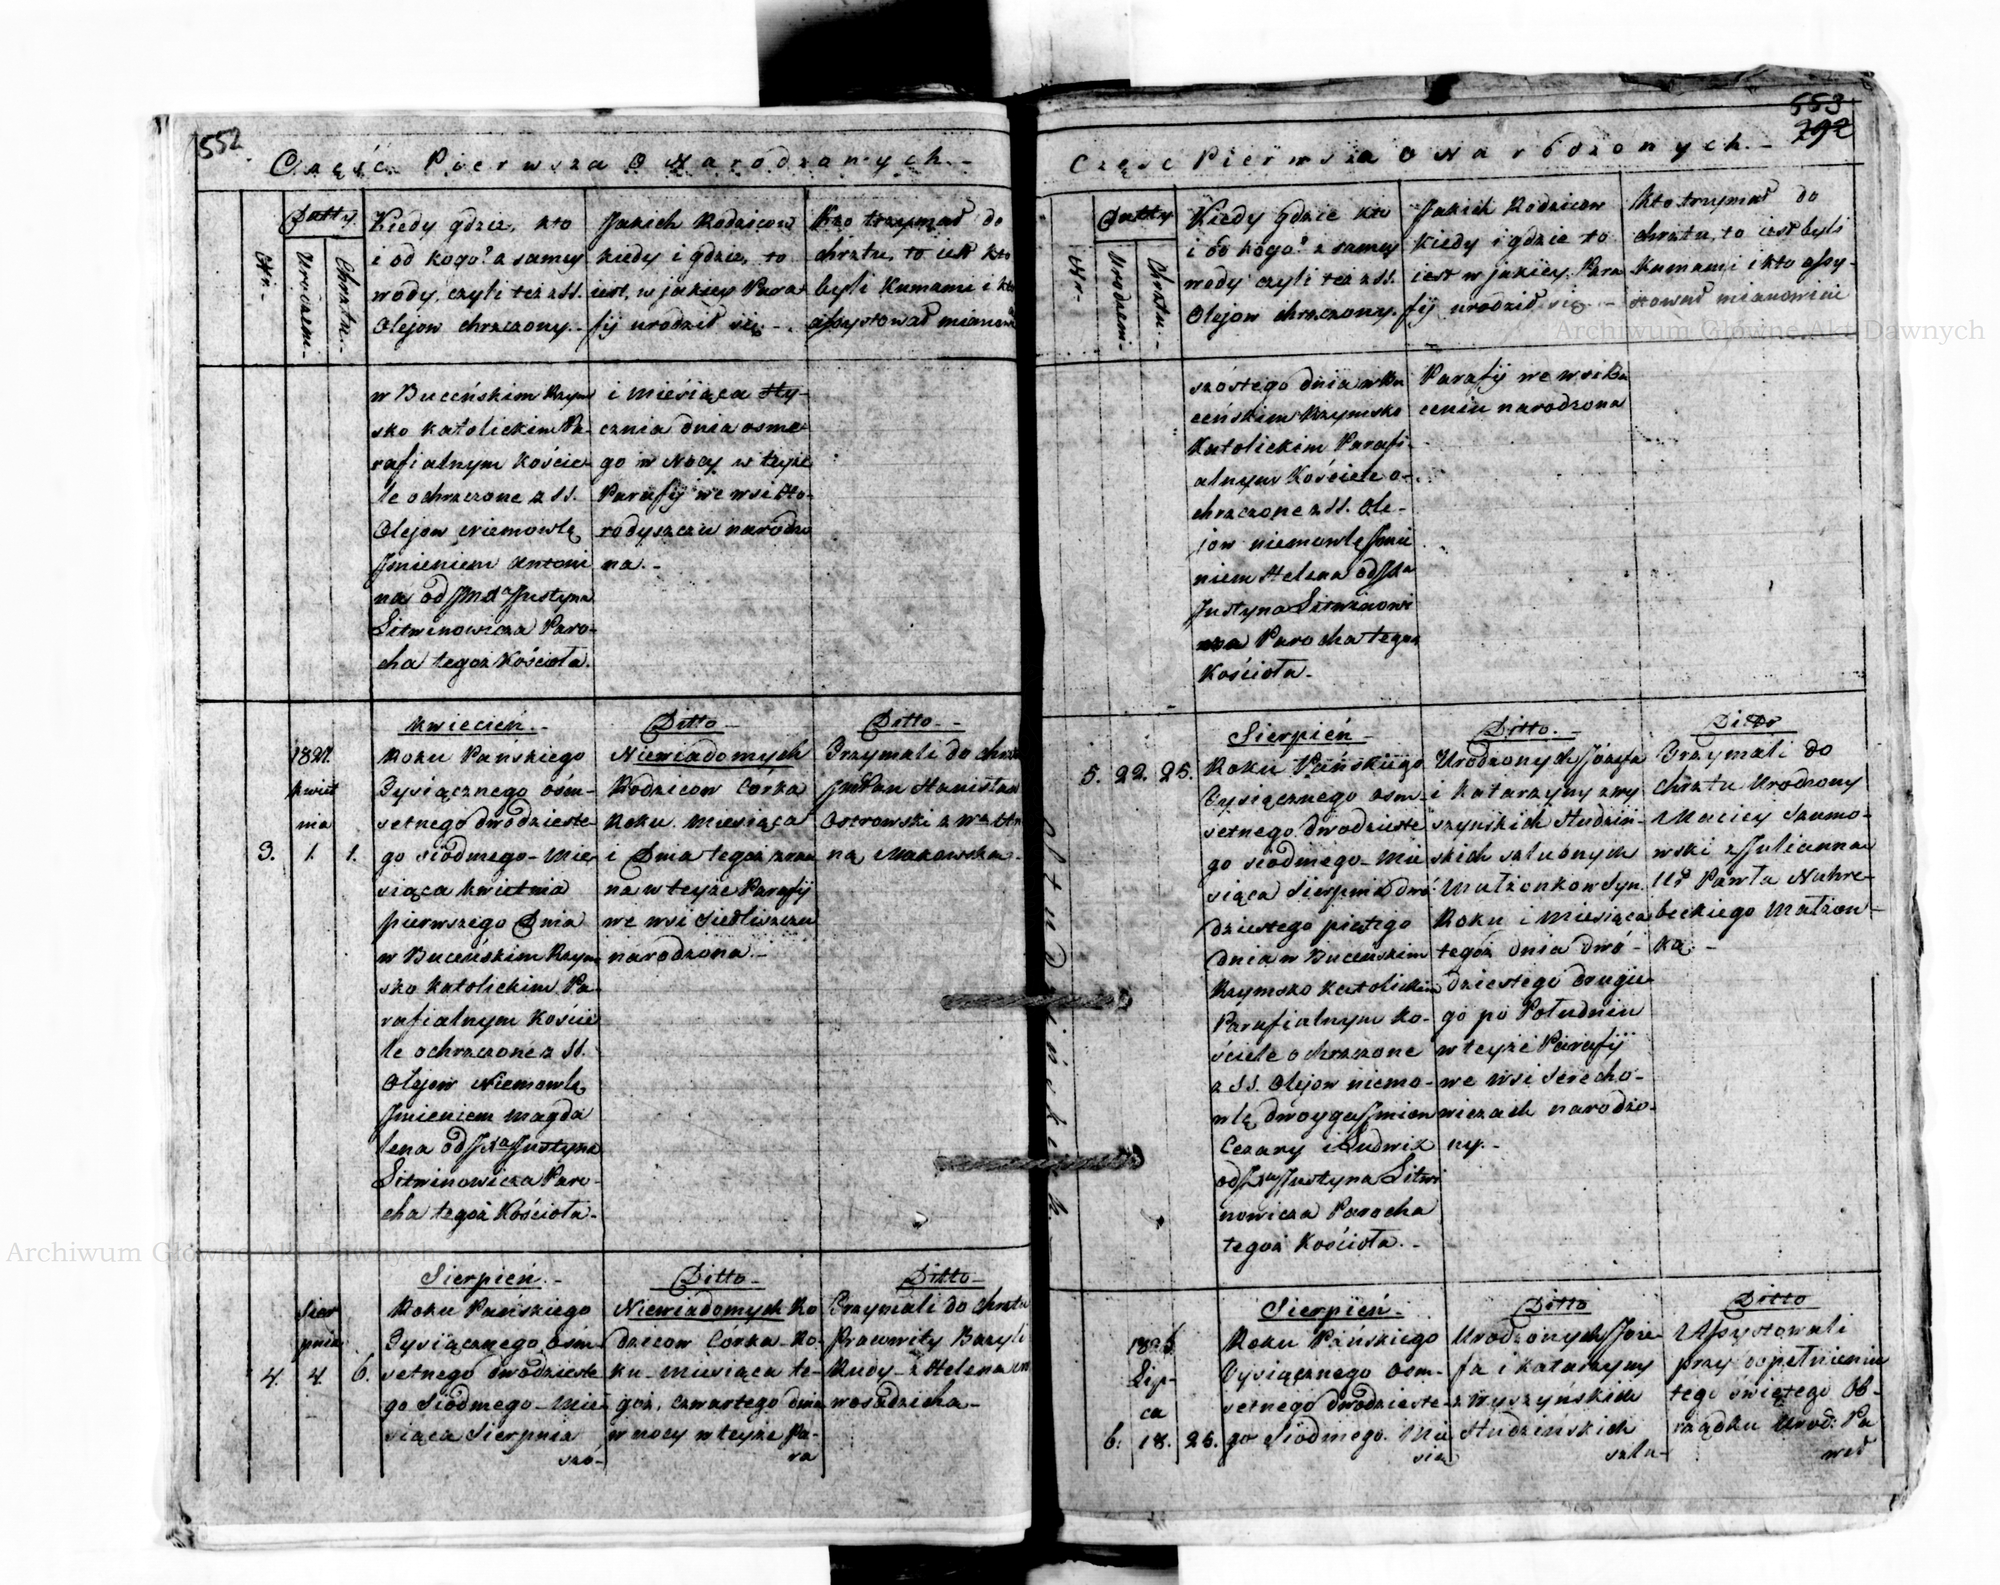 552.
Część Pierwsza O Narodzonych.-
Nr.-
Datty.
Urodzeni.-
Chrztu.-
Kiedy gdzie, kto
i od kogo? z samey
wody, czyli też z SS.
Olejow chrzczony.-
Jakich Rodzicow
kiedy i gdzie, to
iest, w jakiey Para
fij urodził się.-
Kto trzymał do
chrztu, to iest kto
byli Kumami i kto
assystował mianow
w Buceńskim Rzym
sko Katolickim Pa-
rafialnym Koście-
le ochrzczone z SS.
Olejow Niemowle
Jmieniem Antoni
na od Justyna
Litwinowicza Paro-
cha tegoż Kościoła.
i Miesiąca Sty-
cznia dnia osme-
go w Nocy w teyże
Parafij we wsi Ho-
rodyszczu narodzo
na.-
Kwiecień.-
1827.
Kwiet
nia
3. 1. 1.
Roku Pańskiego
Tysiącznego óśm-
setnego dwódzieste-
go siódmego - Mie-
siąca Kwietnia
pierwszego Dnia
w Buceńskim Rzym
sko Katolickim Pa-
rafialnym Koście
le ochrzczone z SS.
Olejow Niemowlę
Jmieniem Magda
lena od Justyna
Litwinowicza Paro-
cha tegoż Kościoła.-
Ditto
Niewiadomych
Rodzicow Córka
Roku Miesiąca
i Dnia tegoż zra
na w teyże Parafij
we wsi Siedliszczu
narodzona.-
Ditto.-
Trzymali do chrztu
Pan Stanisław
Ostrowski z
na Makowska.-
Sierpień.-
Sier
pnia
4. 4. 6.
Roku Pańskiego
Tysiącznego óśm
setnego dwodzieste
go Siódmego - Mie
siąca Sierpnia
szó-
Ditto-
Niewiadomych Ro
dzicow Córka Ro-
ku - Miesiąca te-
goż, czwartego dnia
w nocy w teyże Pa-
ra
Ditto-
Trzymali do chrztu
Prawowity Bazyli
Rudy - z Helena
wosadzicha-
553
292
Część Pierwsza O Narodzonych.-
Nr-
Datty
Urodzeni-
Chrztu.-
Kiedy gdzie kto
i od kogo? z samey
wody czyli też z SS.
Olejow chrzczony.
Jakich Rodzicow
kiedy i gdzie to
iest w jakiey Para
fij urodził się.-
Kto trzymał do
chrztu, to iest byli
Kumami i kto assy-
stował mianowicie
szóstego dnia w Bu
ceńskim Rzymsko
Katolickim Parafi-
alnym Kościele o-
chrzczone z SS. Ole-
jow niemowlę Jmie
niem Helena od
Justyna Litwinowi
cza Parocha tegoż
Kościoła.-
Parafij we wsi Bu
ceniu narodzona
Studzińskich.-
Sierpień-
5. 22. 25.
Roku Pańskiego
Tysiącznego osm-
setnego dwodzieste
go siodmego - Mie
siąca Sierpnia dwó-
dziestego piątego
dnia w Buceńskim
Rzymsko Katolickim
Parafialnym Ko-
ściele ochrzczone
z SS. Olejow niemo-
wlę dwoyga Jmion
Cezary i Ludwik
od Justyna Litwi
nowicza Parocha
tegoż Kościoła.-
Ditto.-
Urodzonych Józefa
i Katarzyny z Wy
szynskich Studziń-
skich szlubnych
Małżonkow Syn.
Roku i Miesiąca
tegoż dnia dwó-
dziestego drugie
go po Południu
w teyże Parafij
we wsi Serecho-
wiczach narodzo-
ny.-
Ditto
Trzymali do
chrztu Urodzony
Maciey Szumo-
wski z Julianna
Ur: Pawła Nahre-
beckiego Małżon-
ka.-
Sierpień.-
1826
Lip-
ca
6. 18. 26.
Roku Pańskiego
Tysiącznego osm-
setnego dwodzieste-
go siódmego. Mie
sią
Ditto
Urodzonych Joze-
fa i Katarzyny
z Wyszyńskich
Studzińskich
szlu-
Ditto
Assystowali
przy dopełnieniu
tego świętego Ob-
rządku Urod: Pa
weł
Archiwum Główne Akt Dawnych
Archiwum Główne Akt Dawnych